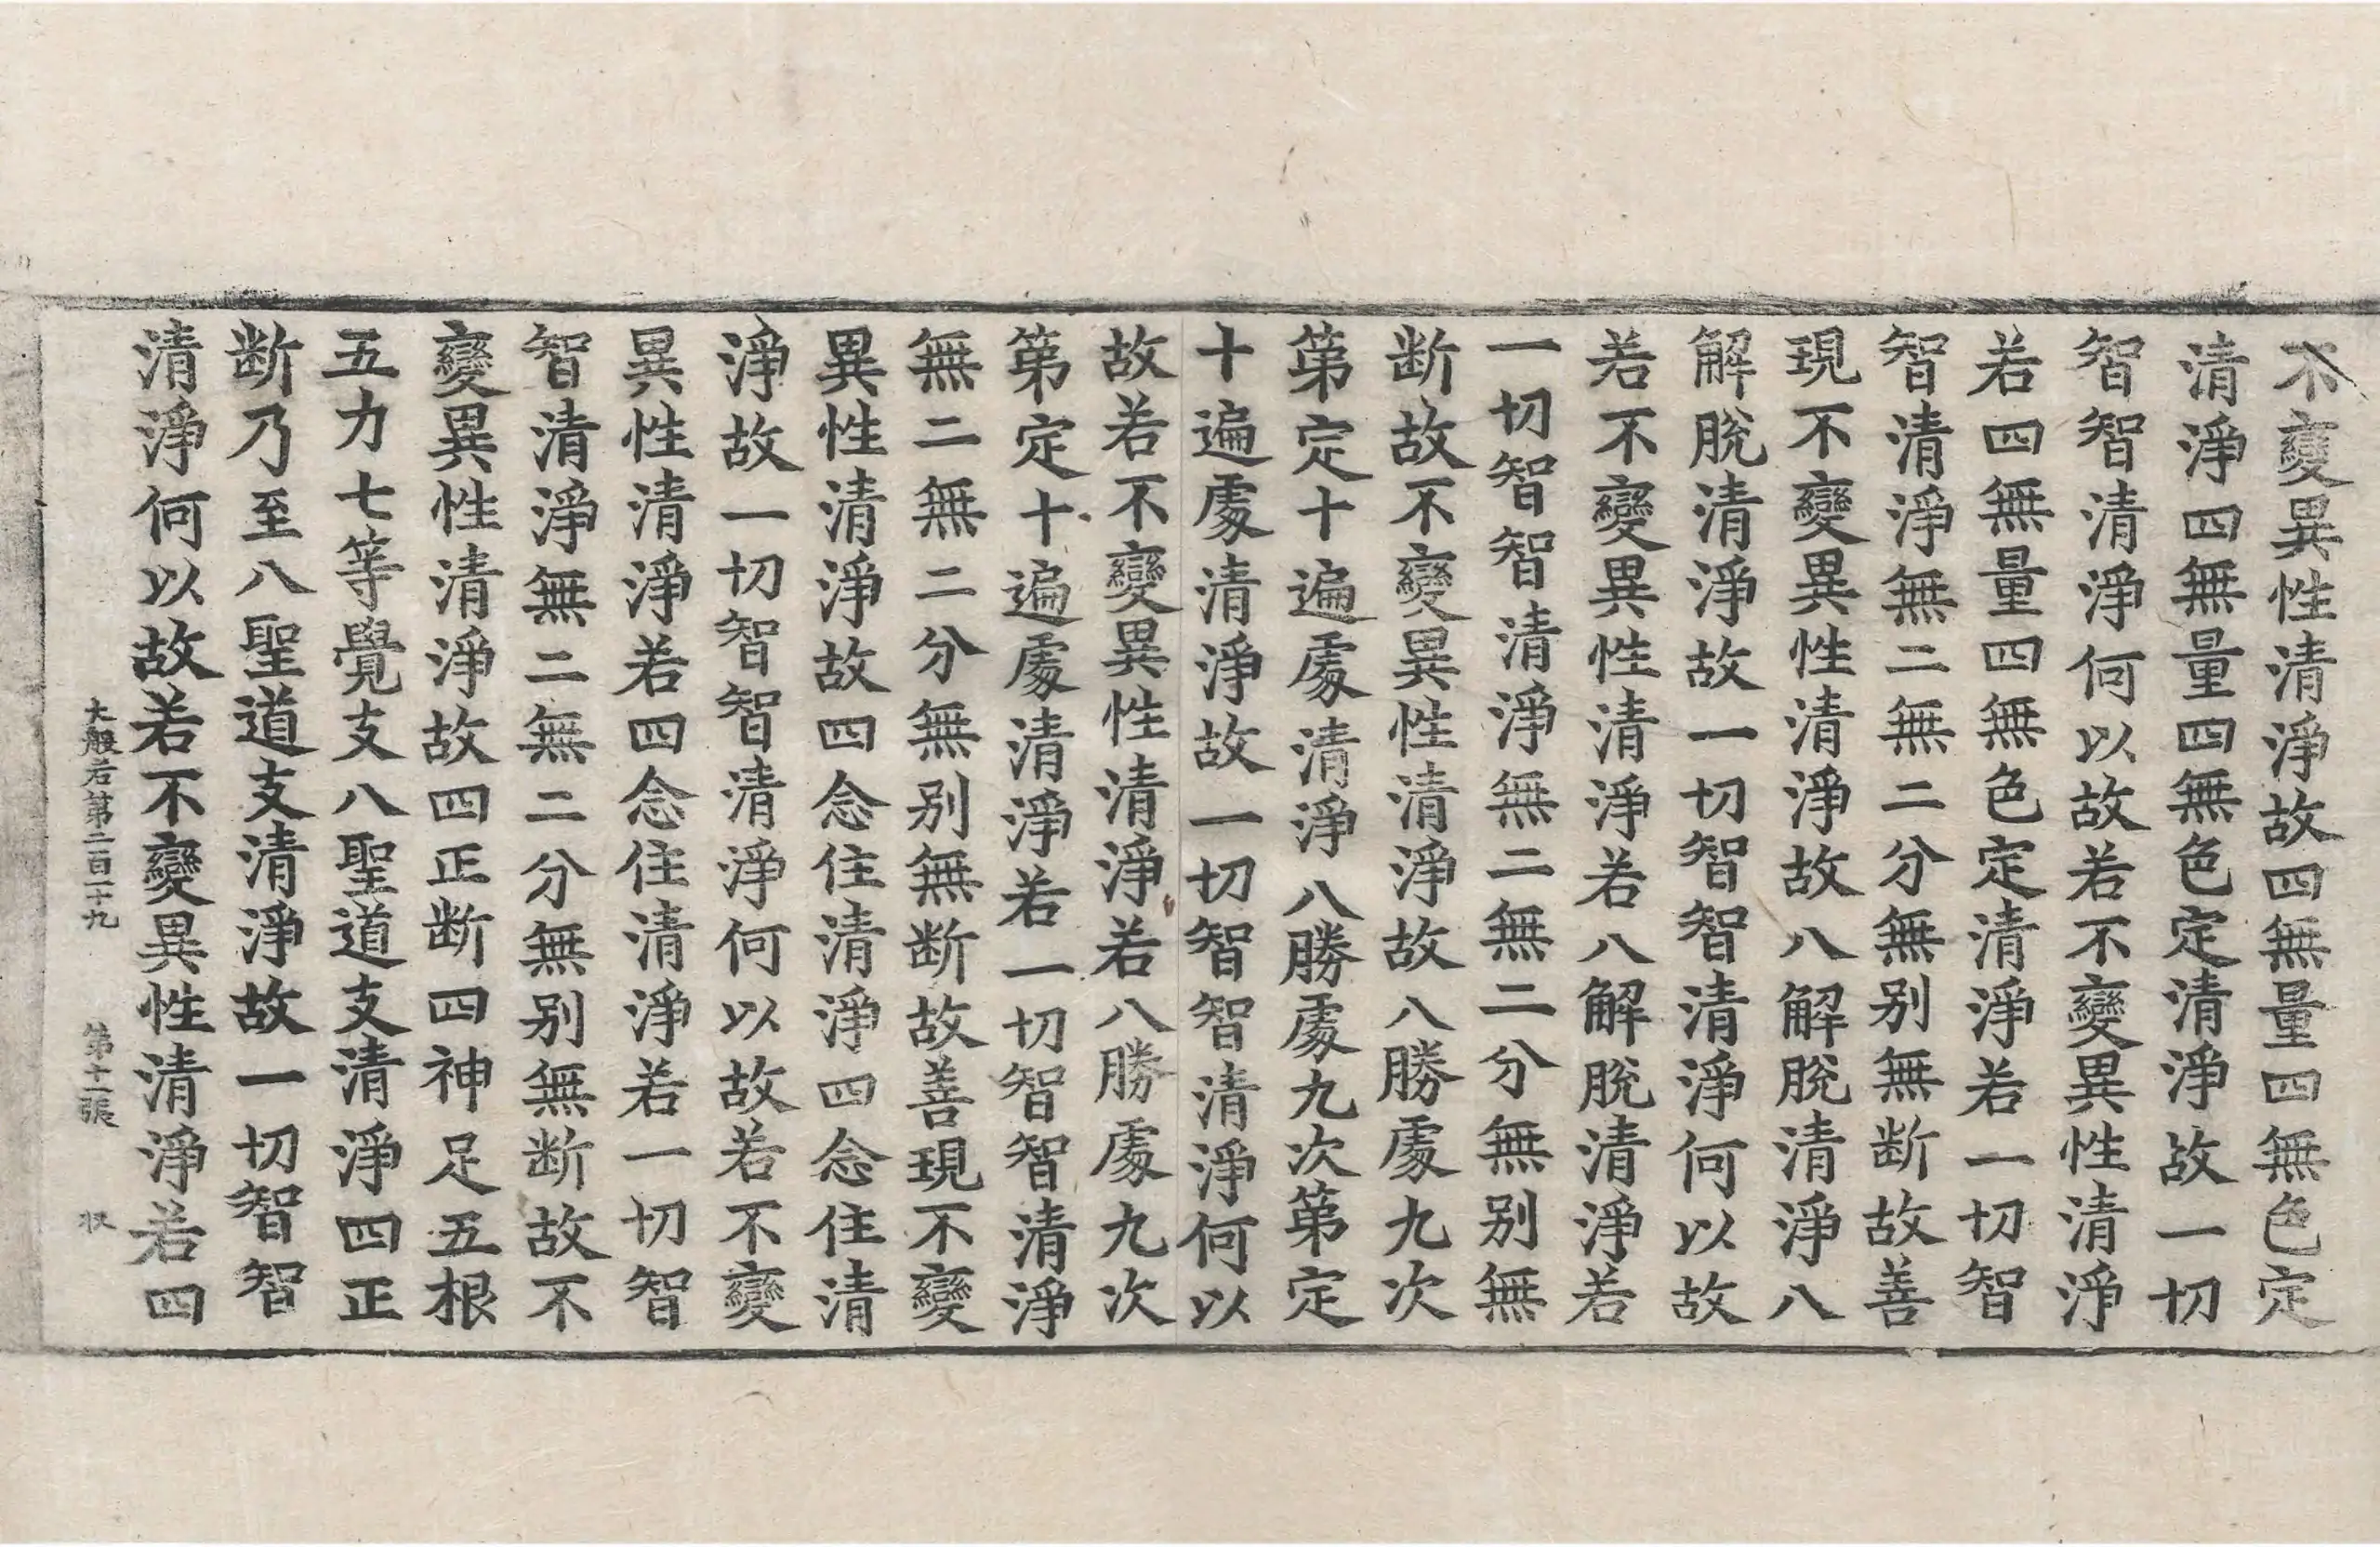 不變異性清淨故四無量四無色定
清淨四無量四無色定清淨故一切
智智清淨何以故若不變異性清淨
若四無量四無色定清淨若一切智
智清淨無二無二分無別無断故善
現不變異性清淨故八解脫清淨八
解脫清淨故一切智智清淨何以故
若不變異性清淨若八解脫清淨若
一切智智清淨無二無二分無別無
断故不變異性清淨故八勝處九次
第定十遍處清淨八勝處九次第定
十遍處清淨故一切智智清淨何以
故若不變異性清淨若八勝處九次
第定十遍處清淨若一切智智清淨
無二無二分無別無断故善現不變
異性清淨故四念住清淨四念住清
淨故一切智智清淨何以故若不變
異性清淨若四念住清淨若一切智
智清淨無二無二分無別無断故不
變異性清淨故四正断四神足五根
五力七等覺支八聖道支清淨四正
断乃至八聖道支清淨故一切智智
清淨何以故若不變異性清淨若四
大般若第二百二十九 第十二張